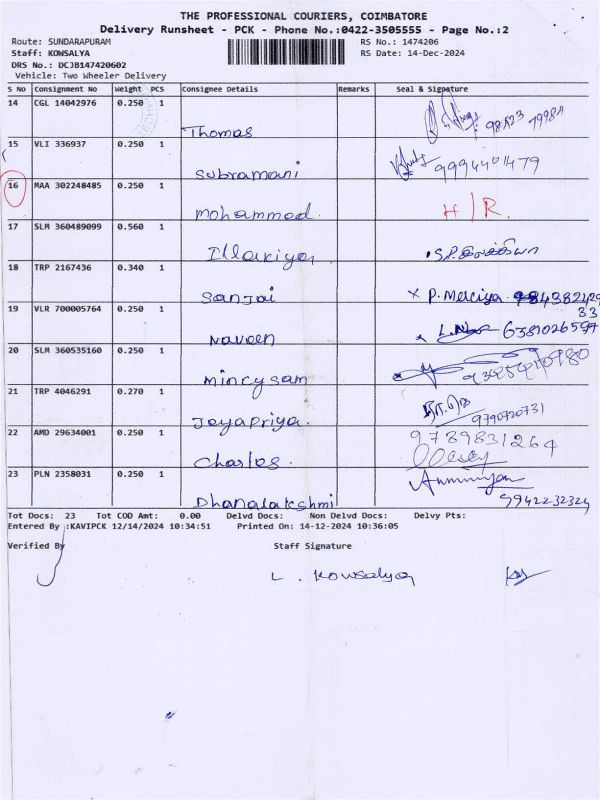 THE PROFESSIONAL COURIERS, COIMBATORE
Delivery Runsheet - PCK - Phone No.:0422-3505555 - Page No.:2
Route: SUNDARAPURAM RS No.: 1474206
Staff: KOWSALYA RS Date: 14-Dec-2024
DRS No.: DCJB147420602
Vehicle: Two Wheeler Delivery
S No Consignment No Weight PCS Consignee Details Remarks Seal & Signature
14 CGL 14042976 0.250 1
Thomas
15 VLI 336937 0.250 1
Subramani 9994401479
16 MAA 302248485 0.250 1
Mohammed H/R.
17 SLM 360489099 0.560 1
Illakiya S.P.இலக்கியா
18 TRP 2167436 0.340 1
Sanjai x P. Merciya
19 VLR 700005764 0.250 1
Naveen 6381026597
20 SLM 360535160 0.250 1
Mincysam
21 TRP 4046291 0.270 1
Jeyapriya 9790720731
22 AMD 29634001 0.250 1 9789831264
Charles
23 PLN 2358031 0.250 1
Dhanalakshmi 9942232324
Tot Docs: 23 Tot COD Amt: 0.00 Delvd Docs: Non Delvd Docs: Delvy Pts:
Entered By :KAVIPCK 12/14/2024 10:34:51 Printed On: 14-12-2024 10:36:05
Verified By Staff Signature
L. Kowsalya